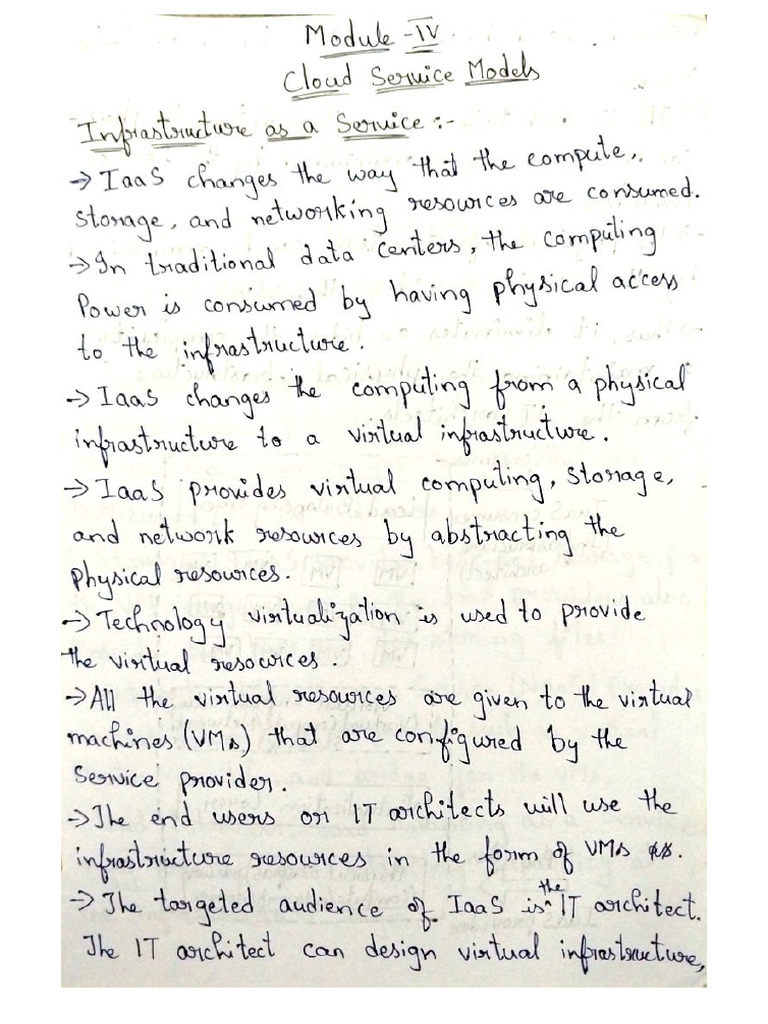 Module - IV
Cloud Service Models
Infrastructure as a Service :-
→ IaaS changes the way that the compute,
storage, and networking resources are consumed.
→ In traditional data centers, the computing
Power is consumed by having physical access
to the infrastructure.
→ IaaS changes the computing from a physical
infrastructure to a virtual infrastructure.
→ IaaS provides virtual computing, storage,
and network resources by abstracting the
physical resources.
→ Technology virtualization is used to provide
the virtual resources.
→ All the virtual resources are given to the virtual
machines (VMs) that are configured by the
Service provider.
→ The end users or IT architects will use the
infrastructure resources in the form of VMs.
→ The targeted audience of IaaS is the IT architect.
The IT architect can design virtual infrastructure,